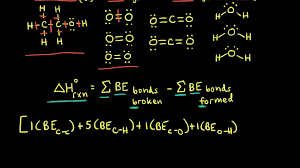 H H
H C C O H
H H
O = O
O = O
O = O
O = C = O
O = C = O
H O H
H O H
H O H
ΔH°rxn = Σ BE bonds broken - Σ BE bonds formed
[1(BE C-C) + 5(BE C-H) + 1(BE C-O) + 1(BE O-H)